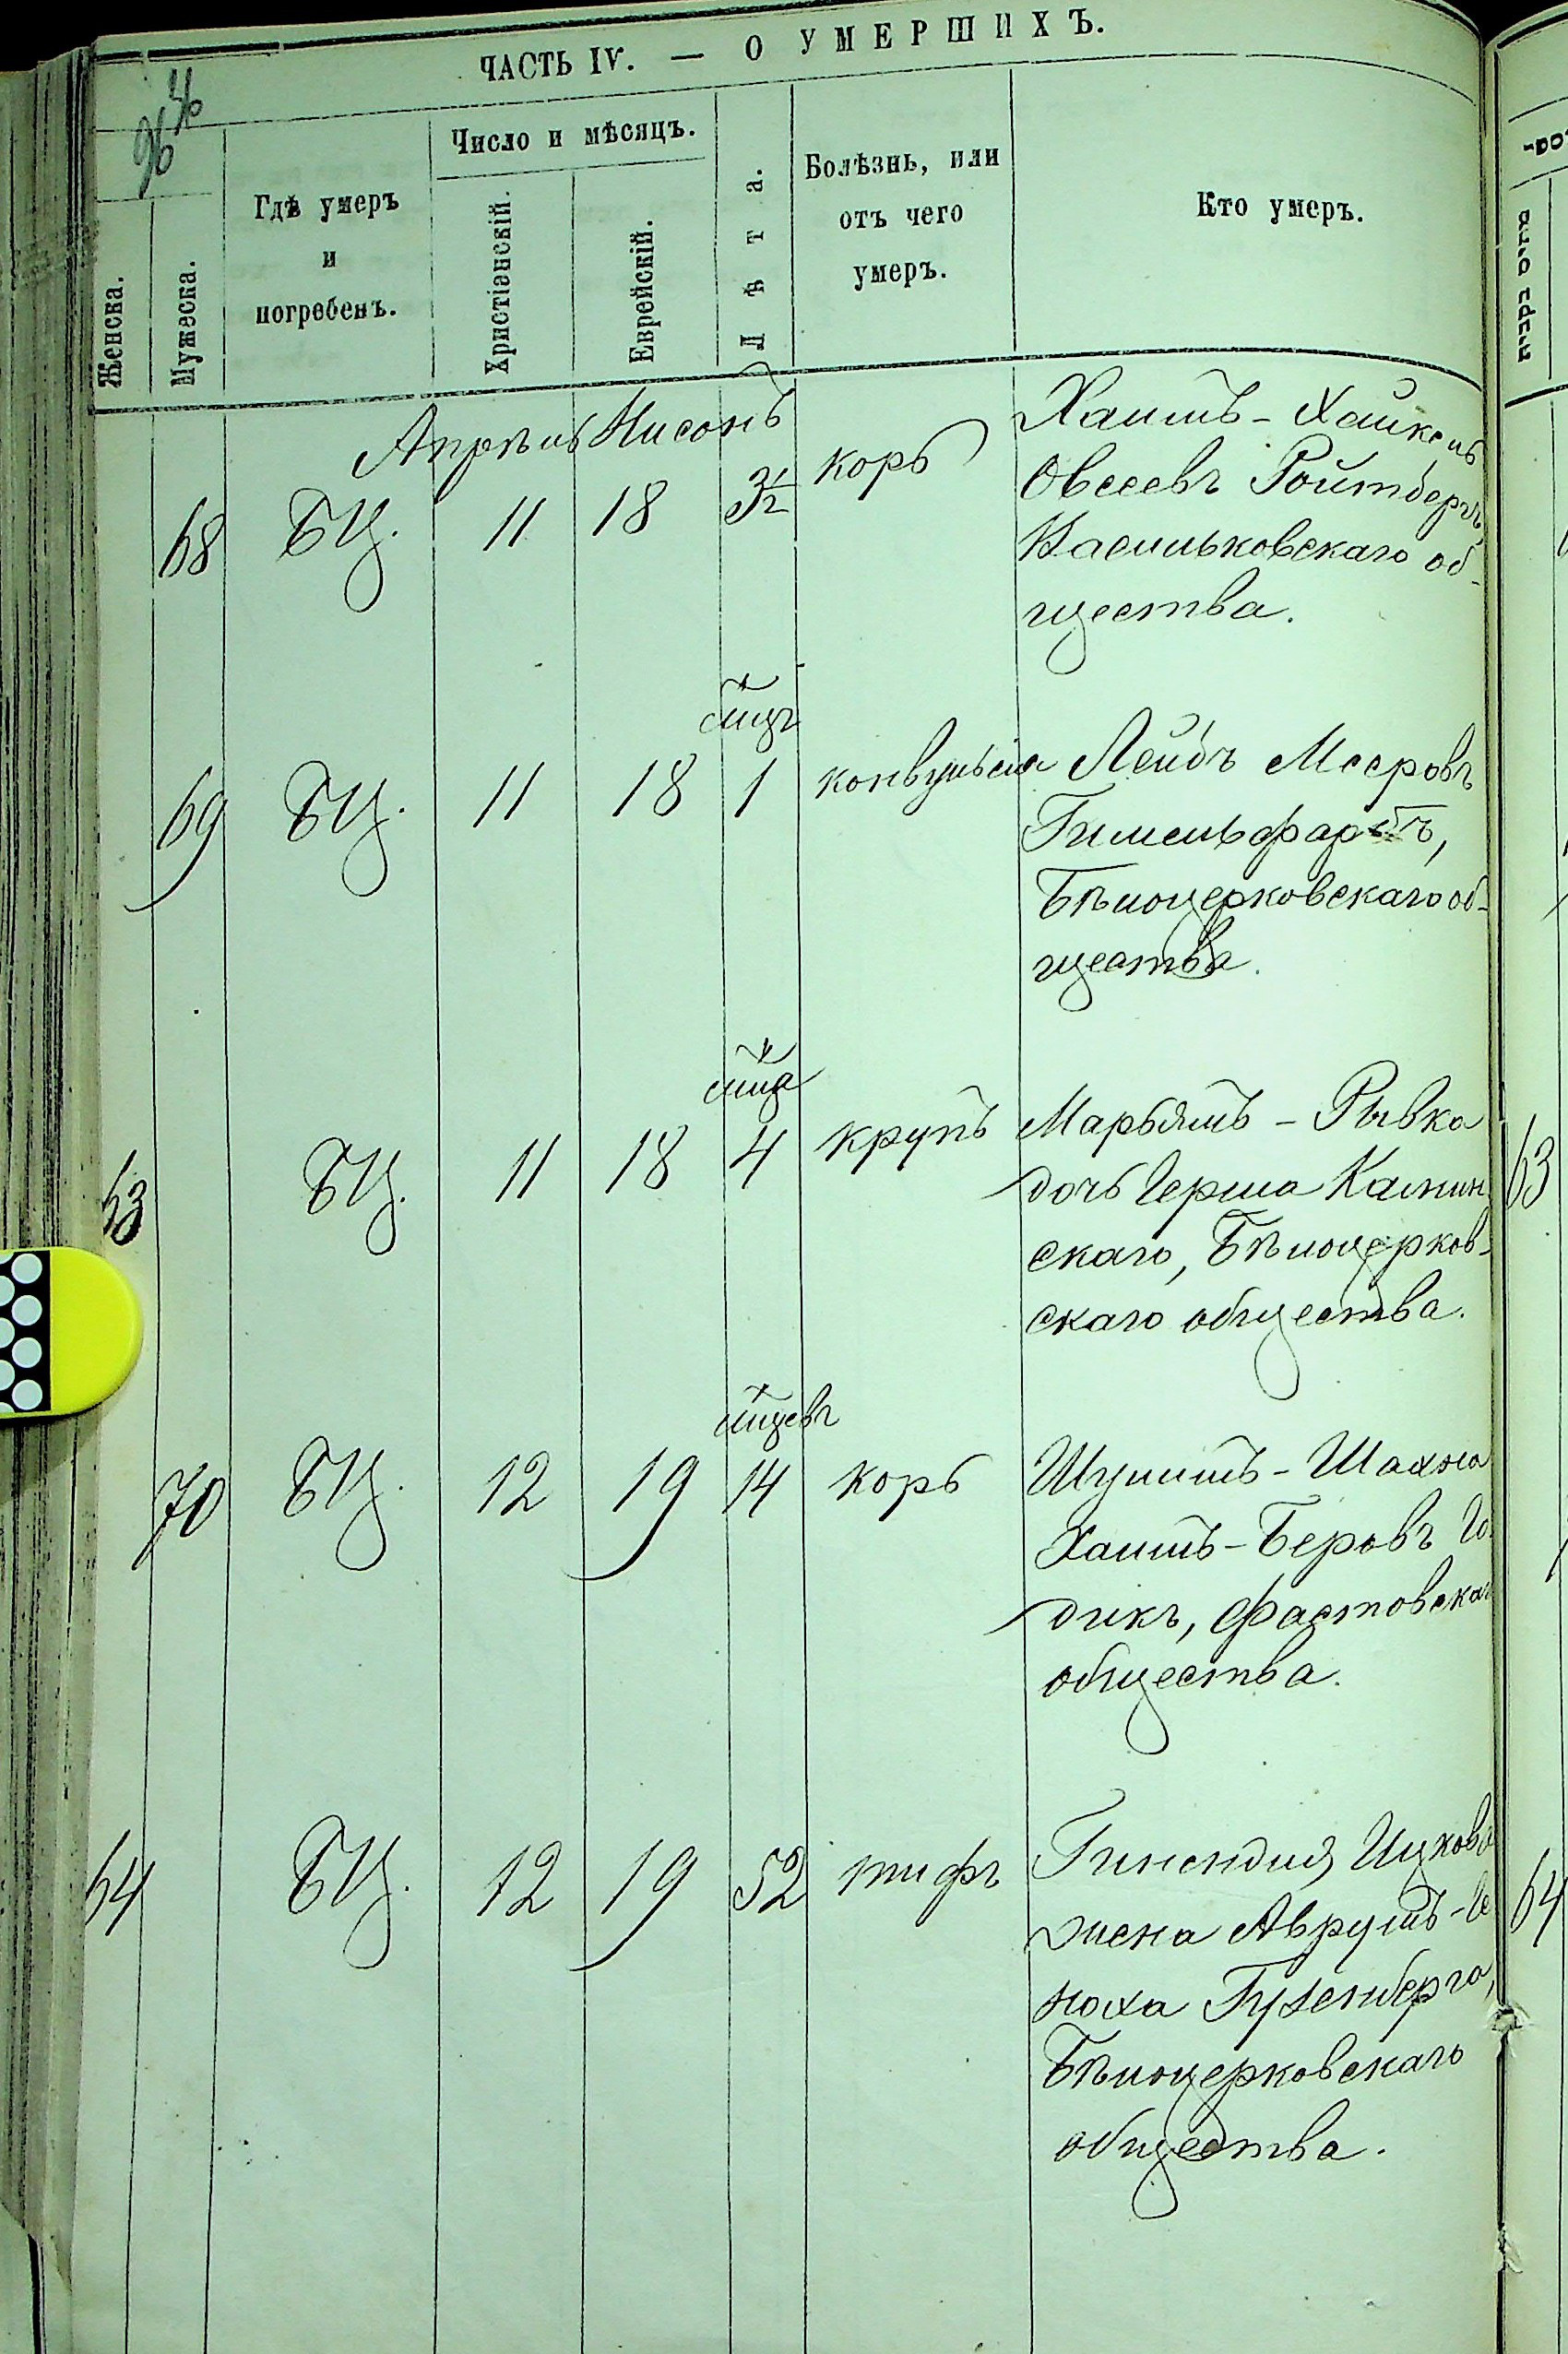 ЧАСТЬ IV. — О УМЕРШИХЪ.
96
Женска.
Мужеска.
Гдѣ умеръ
и
погребенъ.
Число и мѣсяцъ.
Христіанскій.
Еврейскій.
Лѣта.
Болѣзнь, или
отъ чего
умеръ.
Кто умеръ.
Апрѣль Нисонъ
68 БЦ. 11 18 3½ корь Хаимъ-Хайкель
Овсеевъ Ройтбергъ,
Васильковскаго об-
щества.
мцъ
69 БЦ. 11 18 1 конвульсія Лейбъ Мееровъ
Гимельфарбъ,
Бѣлоцерковскаго об-
щества.
мца
63 БЦ. 11 18 4 крупъ Марьямъ-Рывка
дочь Герша Камин
скаго, Бѣлоцерков-
скаго общества.
63
мцевъ
70 БЦ. 12 19 14 корь Шулимъ-Шахна
Хаимъ-Беровъ Го
дикъ, Фастовска
общества.
64 БЦ. 12 19 52 тифъ Гинендля Ицкова
жена Аврумъ-Ге
ноха Гузенберга,
Бѣлоцерковскаго
общества.
64